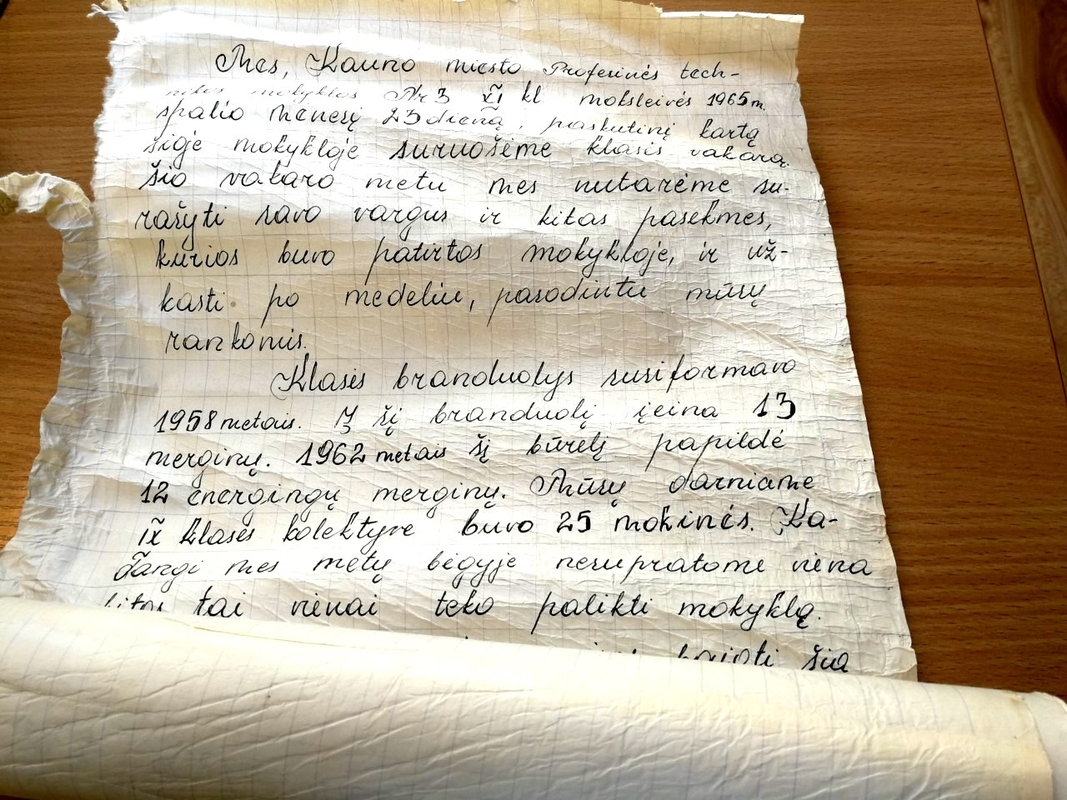 Mes, Kauno miesto Profesinės tech-
nikos mokyklos Nr 3 XI kl moksleivės 1965 m.
spalio mėnesį 23 dieną, paskutinį kartą
šioje mokykloje suruošėme klasės vakarą.
Šio vakaro metu mes nutarėme su-
rašyti savo vargus ir kitas pasekmes,
kurios buvo patirtos mokykloje, ir už-
kasti po medeliu, pasodintu mūsų
rankomis.
Klasės branduolys susiformavo
1958 metais. Į šį branduolį įeina 13
merginų. 1962 metais šį būrelį papildė
12 energingų merginų. Mūsų darniame
IX klasės kolektyve buvo 25 mokinės. Ka-
dangi mes metų bėgyje nesupratome viena
kitos tai vienai teko palikti mokyklą.
baigti šią